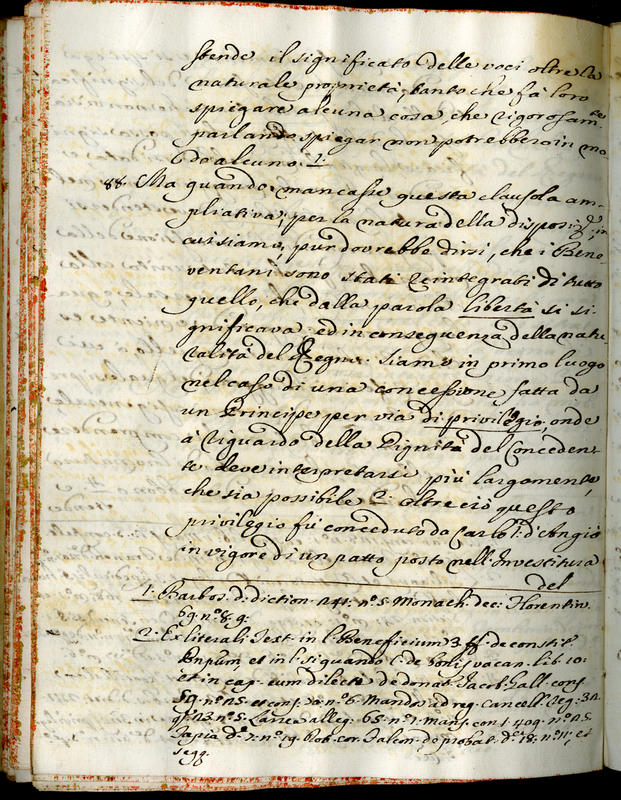 stende il significato delle voci oltre la
naturale proprietà, tanto che fà loro
spiegare alcuna cosa, che rigorosam.te
parlando spiegar non potrebbero in mo-
do alcuno. 1.
88. Ma quando mancasse questa clausola am-
pliativa, per la natura della disposiz.e, in
cui siamo, pur dovrebbe dirsi, che i Bene-
ventani sono stati reintegrati di tutto
quello, che dalla parola libertà si si-
gnificava: ed in conseguenza della natu-
ralità del Regno. Siamo in primo luogo
nel caso di una concessione fatta da
un Principe per via di privilegio, onde
à riguardo della Dignità del Conceden-
te deve interpretarsi più largamente,
che sia possibile 2. oltre ciò questo
privilegio fù conceduto da Carlo I. d'Angiò
in vigore di un patto posto nell'Investitura
del
1. Barbos. d. diction. n.º 5. Monach. dec. Florentin.
69. nº 8. 9.
2. Ex literali Text. in l. Beneficium 3. ff. de constit.
Pnpum et in l. si quando C. de bonis vacan. lib. 10.
et in cap. cum dilecti de donat. Jacob. Gall. cons.
59. nº et cons. nº 6. Mandos ad reg. Cancell. reg. 32.
nº 5. alleg. 65. nº 1. cons. 409. nº
Tapia nº 19. Falcon. de probat. nº 11. et
segg.